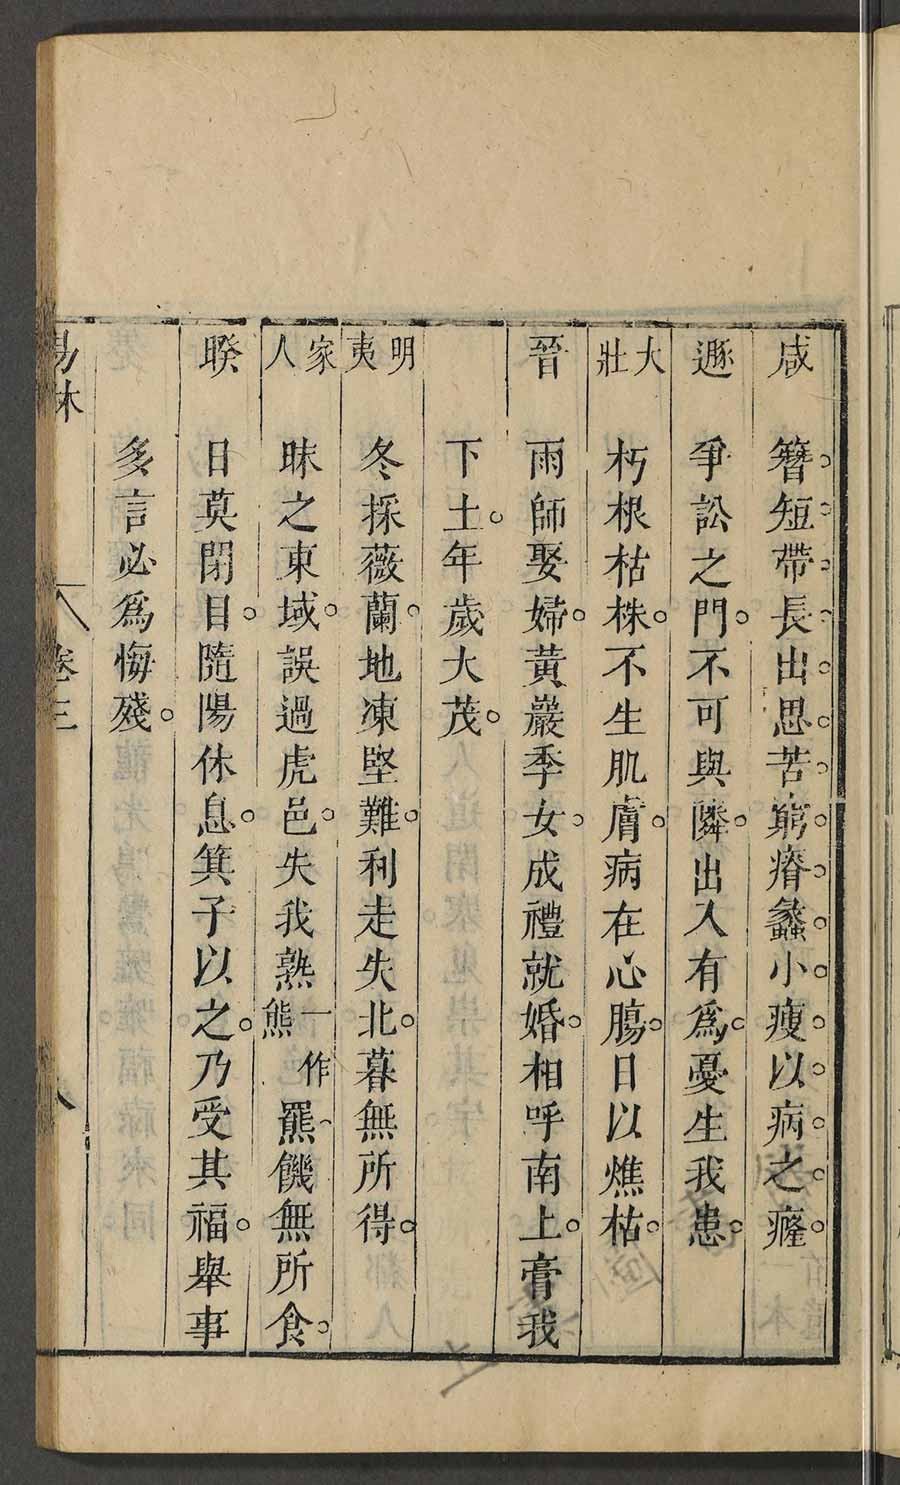 咸　簪短帶長出思苦窮瘠蠡小瘦以病之癃
遯　爭訟之門不可與隣出入有爲憂生我患
大壯　朽根枯株不生肌膚病在心膓日以燋枯
晉　雨師娶婦黃巖季女成禮就婚相呼南上膏我
下土年歲大茂
明夷　冬採薇蘭地凍堅難利走失北暮無所得
家人　昧之東域誤過虎邑失我熟熊一作羆饑無所食
睽　日莫閉目隨陽休息箕子以之乃受其福舉事
多言必爲悔殘
易林　卷三　八